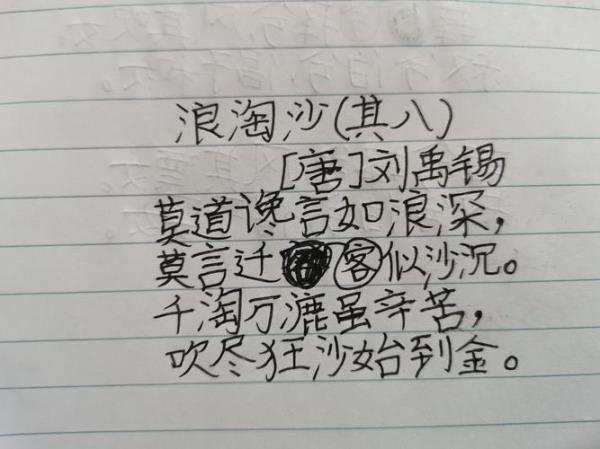 浪淘沙(其八)
[唐]刘禹锡
莫道谗言如浪深,
莫言迁客似沙沉。
千淘万漉虽辛苦,
吹尽狂沙始到金。